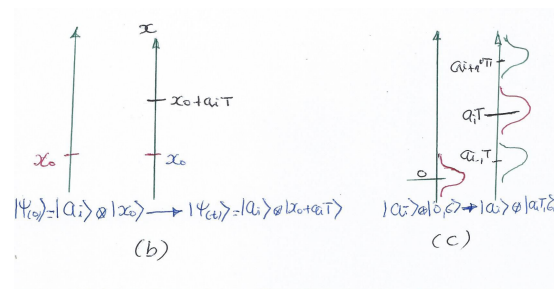 x
x₀+aᵢT
x₀
x₀
|Ψ(0)⟩=|aᵢ⟩⊗|x₀⟩ → |Ψ(t)⟩=|aᵢ⟩⊗|x₀+aᵢT⟩
(b)
aᵢT
aᵢ₋₁T
0
|aᵢ⟩⊗|0,6⟩→|aᵢ⟩⊗|aᵢT,6
(c)